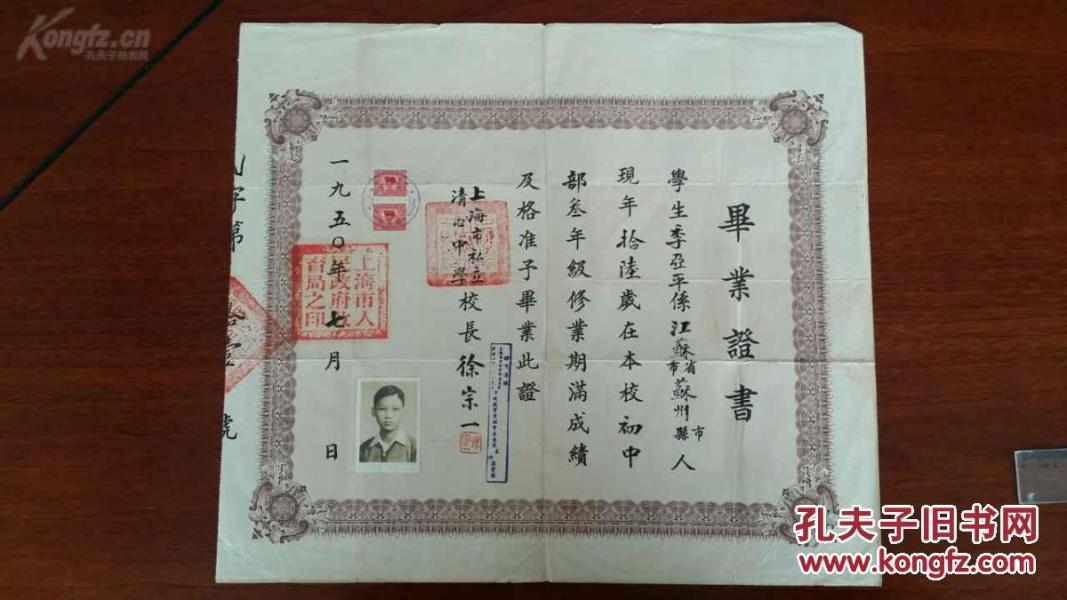 畢業證書
學生季亞平係江蘇省市蘇州市縣人
現年拾陸歲在本校初中
部叁年級修業期滿成績
及格准予畢業此證
上海市私立
清心中學
校長徐宗一
一九五〇年七月 日
字第
號
上海市人
民政府教
育局之印
Kongfz.cn
孔夫子拍卖网
孔夫子旧书网
www.kongfz.com